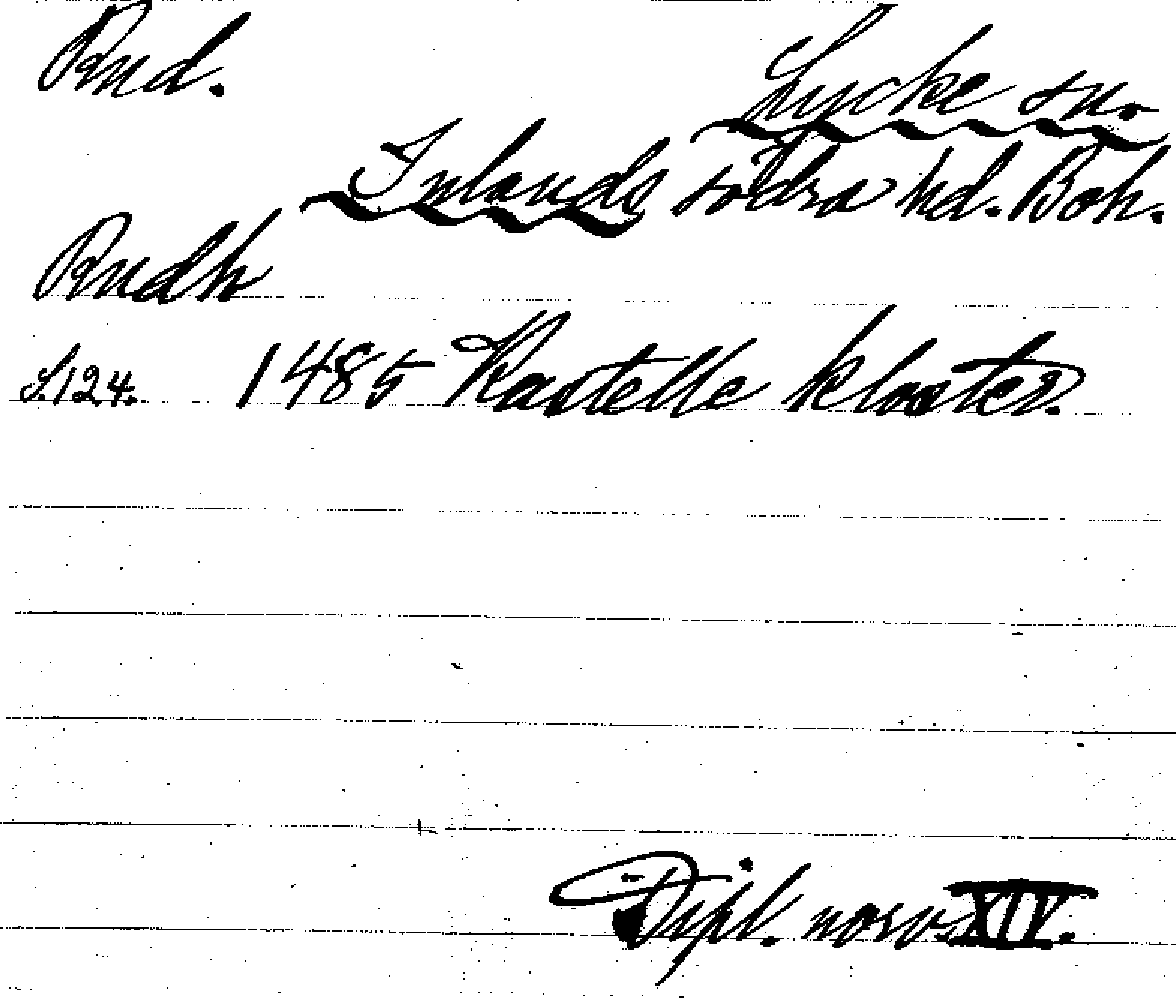 Rud.
Lycke sn.
Inlands södra hd. Boh.
Rudh
S.124. 1485 Kastelle kloster.
Dipl. norv. XIV.